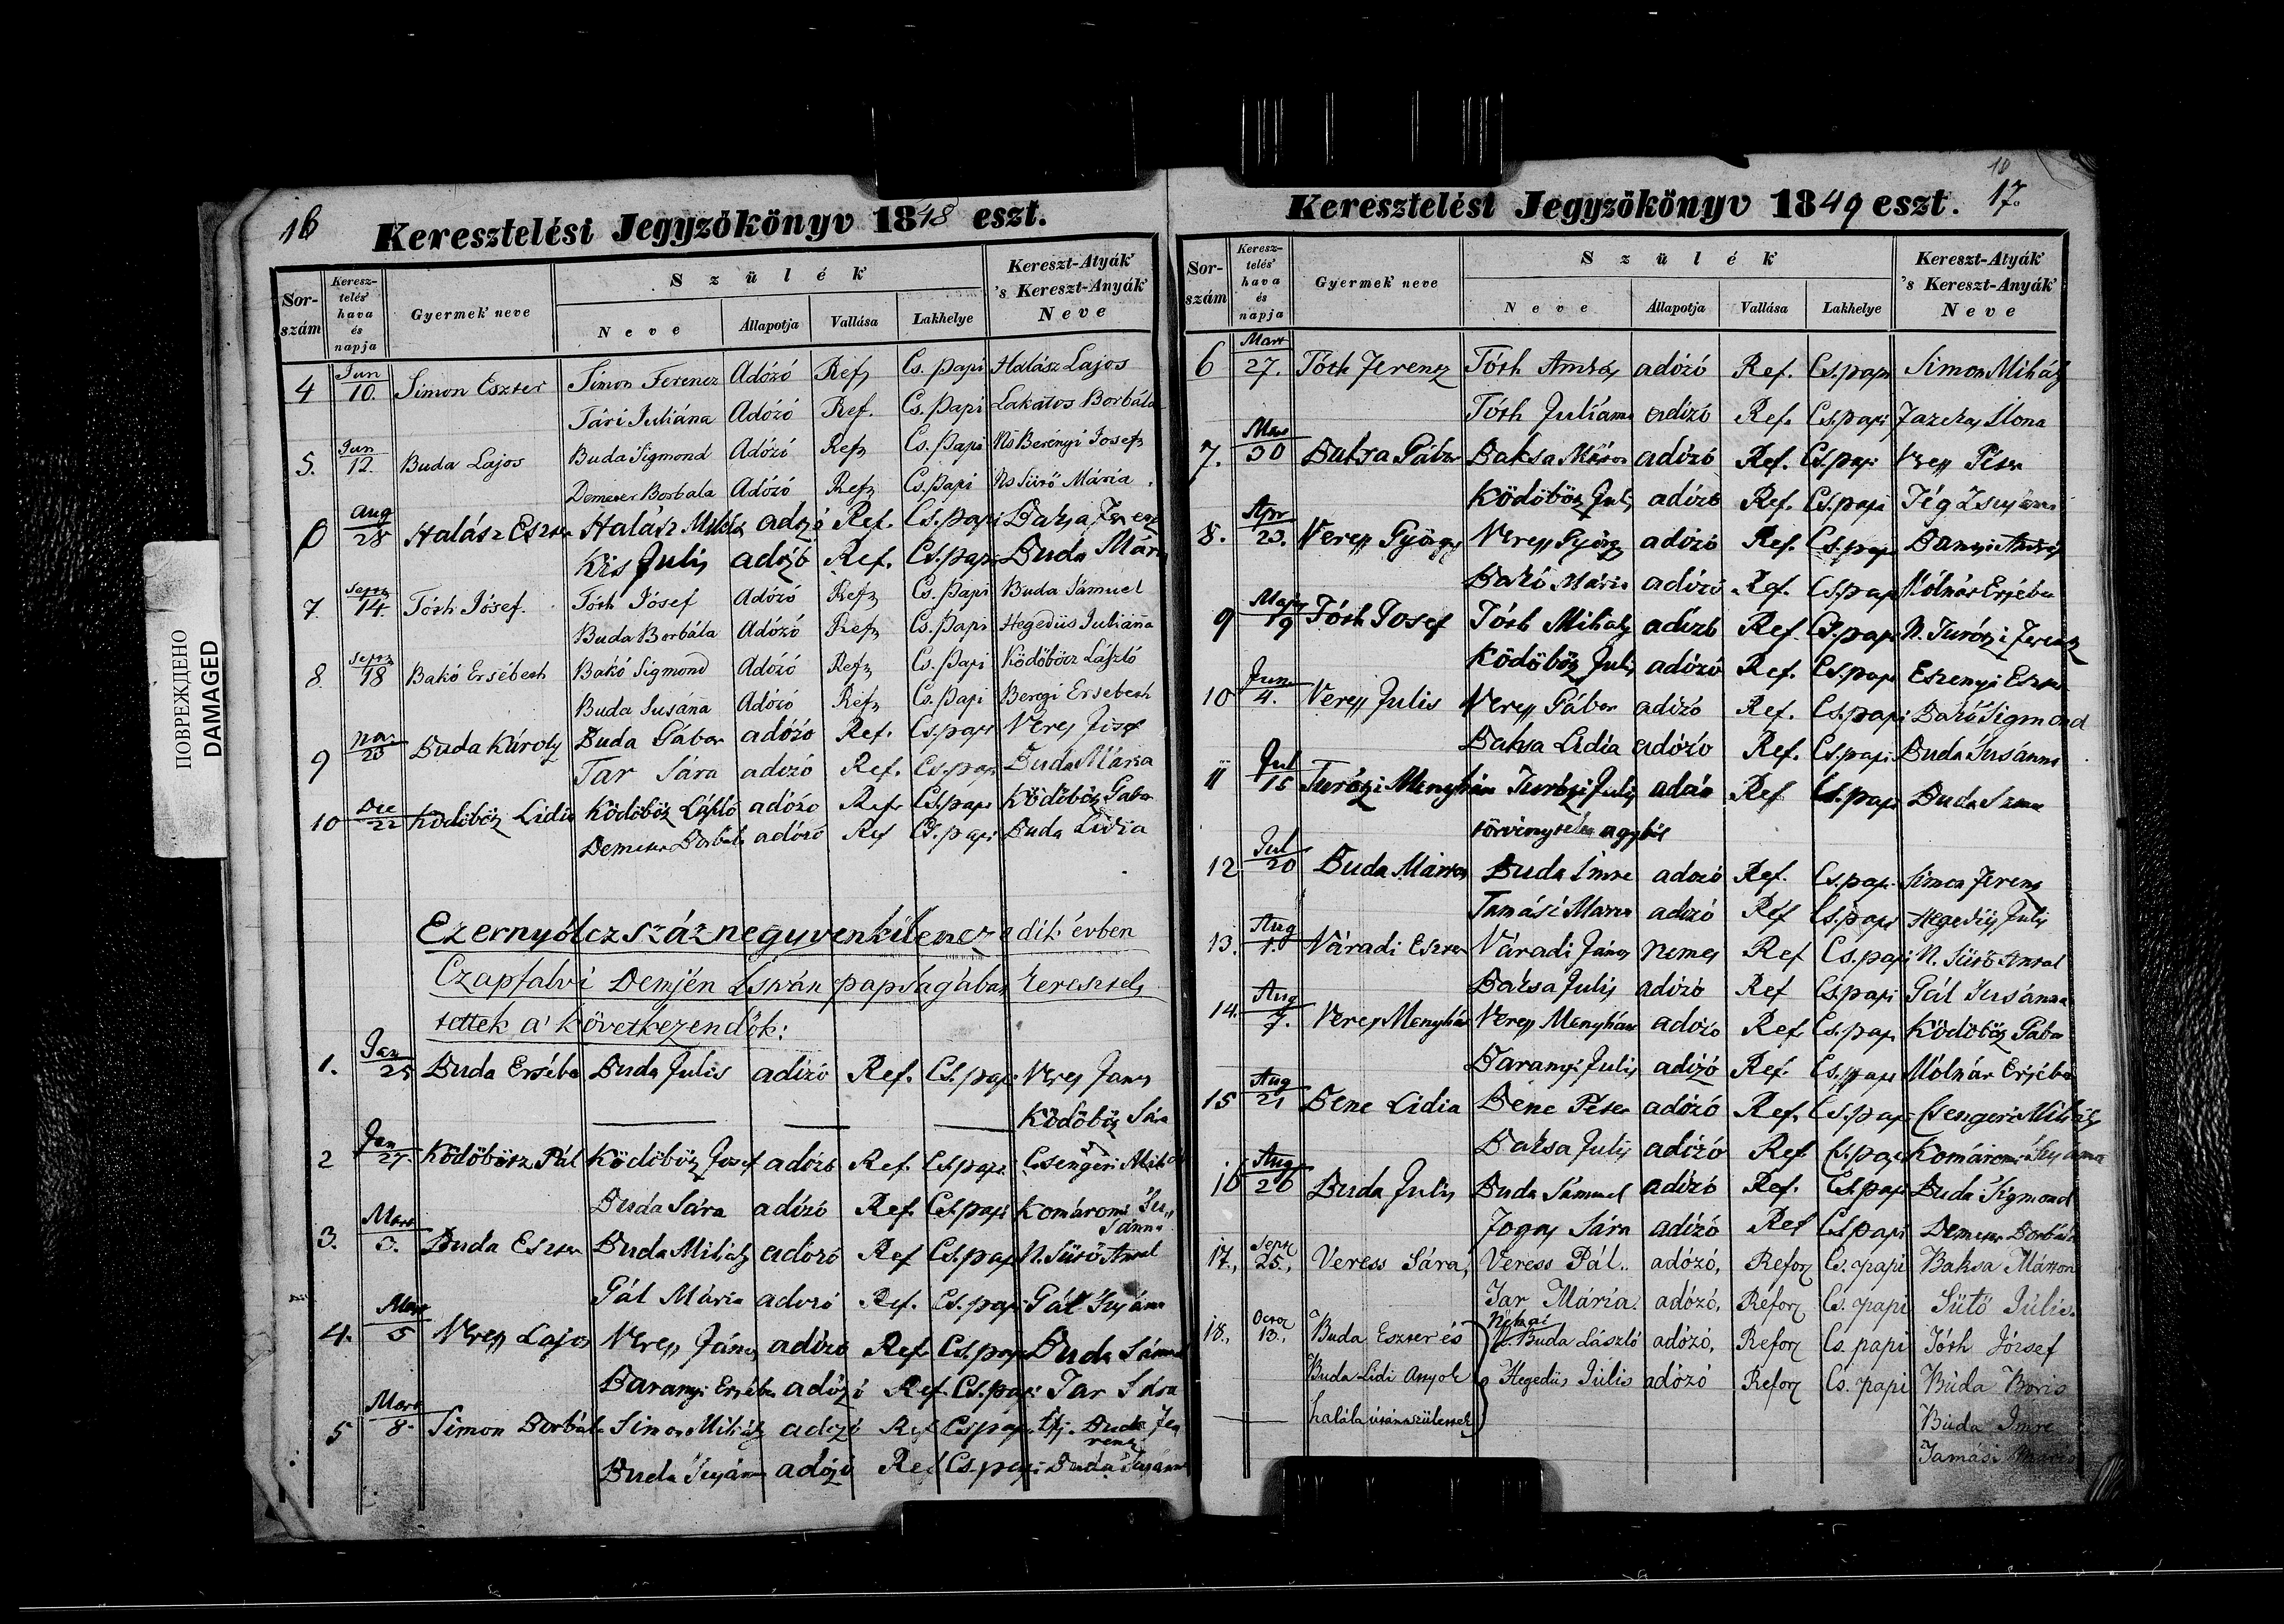 ПОВРЕЖДЕНО
DAMAGED
16
Keresztelési Jegyzőkönyv 1848 eszt.
Sor-szám Keresz-telés hava és napja Gyermek neve Szülék Neve Állapotja Vallása Lakhelye Kereszt-Atyák 's Kereszt-Anyák Neve
4 Jun 10. Simon Eszter Simon Ferencz Adózó Ref Cs. papi Halász Lajos
Tári Juliána Adózó Ref. Cs. papi Lakatos Borbála
5. Jun 12. Buda Lajos Buda Sigmond Adózó Ref Cs. papi Ns Berényi Josef
Demeter Borbala Adózó Ref Cs. papi Ns Sűrő Mária
6 Aug 28 Halász Eszter Halász Miklós adózó Ref. Cs. papi Baksa Ferencz
Kis Julis adózó Ref. Cs. papi Buda Mária
7. Sept 14. Tóth Jósef. Tóth Jósef Adózó Ref Cs. papi Buda Sámuel
Buda Borbála Adózó Ref Cs. papi Hegedüs Julianna
8. Sept 18 Bakó Ersébeth Bakó Sigmond Adózó Ref Cs. papi Ködöböcz László
Buda Susánna Adózó Ref Cs. papi Beregi Ersebeth
9 28 Buda Károly Buda Gábor adózó Ref. Cs. papi Veres Jósef
Tar Sára adózó Ref. Cs. papi Buda Mária
10 Dec 22 Ködöböz Lidia Ködöböz László adózó Ref. Cs. papi Ködöböz Gábor
Demeter Borbála adózó Ref Cs. papi Buda Lidia
Ezernyólczszáznegyvenkilenczedik évben
Czapfalvi Demjén István papságában keresztel
tettek a' következendők:
1. Jan 25 Buda Ersébe Buda Julis adózó Ref. Cs. papi Veres János
Ködöböz Sára
2 Jan 27. Ködöböcz Pál Ködöböz Josef adózó Ref. Cs. papi Csengeri Mihá
Buda Sára adózó Ref. Cs. papi Komáromi Susánna
3. Mart 3. Buda Eszter Buda Mihály adózó Ref Cs. papi N. Sűrő Antal
Gál Mária adózó Ref. Cs. papi Gál Susána
4. Mart 5 Veress Lajos Veress János adózó Ref. Cs. papi Buda Sámuel
Baranyi Ersébe adózó Ref. Cs. papi Tar Sára
5 Mart 8. Simon Borbála Simon Mihály adózó Ref Cs. papi Ifj. Buda Ferencz
Buda Susána adózó Ref Cs. papi Buda Susánna
Keresztelési Jegyzőkönyv 1849 eszt.
17.
Sor-szám Keresz-telés hava és napja Gyermek neve Szülék Neve Állapotja Vallása Lakhelye Kereszt-Atyák 's Kereszt-Anyák Neve
6 Mart 27. Tóth Ferencz Tóth András adózó Ref. Cs. papi Simon Mihály
Tóth Juliána adózó Ref. Cs. papi Ilona
7. Mar 30 Baksa Gábor Baksa Márton adózó Ref. Cs. papi Veress Péter
Ködöböz Julis adózó Ref. Cs. papi
8. Apr 23. Veress György Veress György adózó Ref. Cs. papi Baranyi András
Bakó Mária adózó Ref. Cs. papi Mólnár Ersébe
9 Maj 19 Tóth Josef Tóth Mihály adózó Ref. Cs. papi N. Turóczi Ferencz
Ködöböz Julis adózó Ref. Cs. papi Eszenyi Eszter
10 Juni 4. Veress Julis Veress Gábor adózó Ref. Cs. papi Bakó Sigmond
Baksa Lidia adózó Ref. Cs. papi Buda Susánna
11 Jul 15 Turóczi Menyhárt Turóczi Julis adózó Ref Cs. papi Buda
törvénytelen ágyból
12 Jul 20 Buda Márton Buda Imre adozó Ref. Cs. papi Simon Ferencz
Tamási Maria adózó Ref Cs. papi Hegedüs Julis
13. Aug Váradi Eszter Váradi János nemes Ref Cs. papi N. Sűrő Antal
Baksa Julis adózó Ref Cs. papi Gál Susánna
14. Aug 7. Veres Menyhár Veress Menyhárt adózó Ref. Cs. papi Ködöböz Gábor
Baranyi Julis adózó Ref. Cs. papi Mólnár Ersébe
15 Aug 21 Bene Lidia Bene Péter adózó Ref. Cs. papi Csengeri Mihály
Baksa Julis adózó Ref. Cs. papi Komáromi Susánna
16 Aug 26 Buda Julis Buda Sámuel adózó Ref. Cs. papi Buda Sigmond
Sára adózó Ref Cs. papi Demeter Borbála
17., Sept 25., Veress Sára, Veress Pál.. adózó, Refor Cs. papi Baksa Márton
Tar Mária. adózó, Refor Cs. papi Sütő Júlis.
18., Octo 13., Buda Eszter és Néhai Buda László adózó, Refor Cs. papi Tóth Jósef
Buda Lidi Anyok Hegedüs Júlis adózó Refor Cs. papi Buda Boris
halála után születtek Buda Imre
Tamási Mária